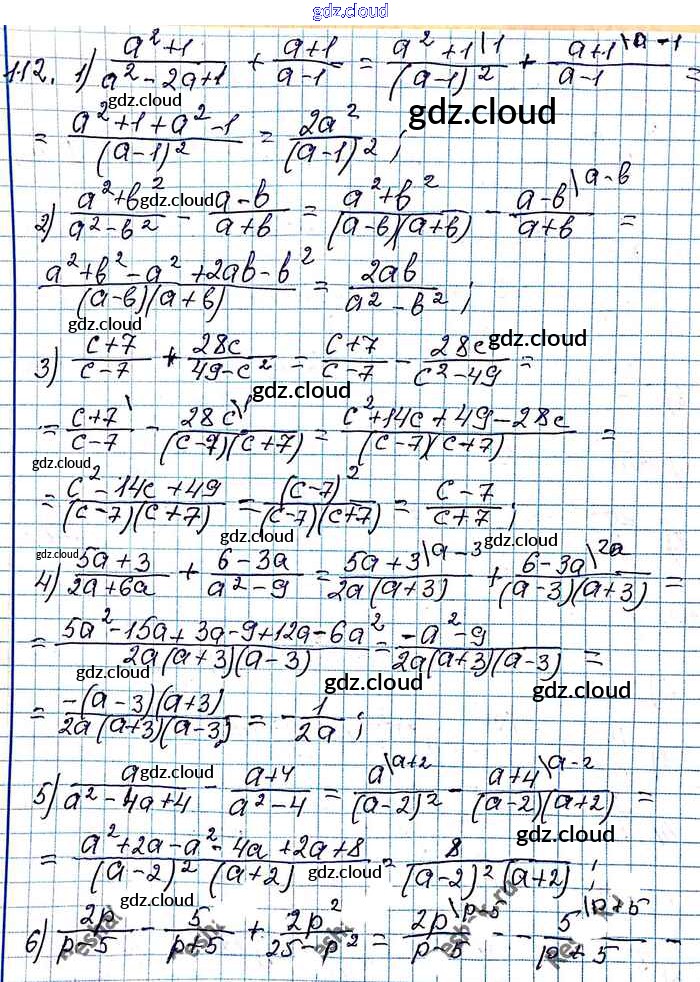 gdz.cloud
112. 1) (a²+1)/(a²-2a+1) + (a+1)/(a-1) = (a²+1\1)/((a-1)²) + (a+1\a-1)/(a-1) =
gdz.cloud gdz.cloud gdz.cloud
= (a²+1+a²-1)/((a-1)²) = 2a²/(a-1)²;
gdz.cloud
2) (a²+b²)/(a²-b²) - (a-b)/(a+b) = (a²+b²)/((a-b)(a+b)) - (a-b\a-b)/(a+b) =
gdz.cloud
(a²+b²-a²+2ab-b²)/((a-b)(a+b)) = 2ab/(a²-b²);
gdz.cloud
3) (c+7)/(c-7) + 28c/(49-c²) = (c+7)/(c-7) - 28c/(c²-49) =
gdz.cloud gdz.cloud
= (c+7\)/(c-7) - (28c\1)/((c-7)(c+7)) = (c²+14c+49-28c)/((c-7)(c+7)) =
gdz.cloud
= (c²-14c+49)/((c-7)(c+7)) = (c-7)²/((c-7)(c+7)) = (c-7)/(c+7);
gdz.cloud gdz.cloud
4) (5a+3)/(2a+6a) + (6-3a)/(a²-9) = (5a+3\a-3)/(2a(a+3)) + (6-3a\2a)/((a-3)(a+3)) =
gdz.cloud gdz.cloud
= (5a²-15a+3a-9+12a-6a²)/(2a(a+3)(a-3)) = (-a²-9)/(2a(a+3)(a-3)) =
gdz.cloud gdz.cloud gdz.cloud
= -(a-3)(a+3)/(2a(a+3)(a-3)) = -1/(2a);
gdz.cloud
5) a/(a²-4a+4) - (a+4)/(a²-4) = (a\a+2)/((a-2)²) - (a+4\a-2)/((a-2)(a+2)) =
gdz.cloud gdz.cloud
= (a²+2a-a²-4a+2a+8)/((a-2)²(a+2)) = 8/((a-2)²(a+2));
gdz.cloud
6) 2p/(p-5) - 5/(p+5) + 2p²/(25-p²) = (2p\p-5)/(p-5) - - (5\p+5)/(p+5) -